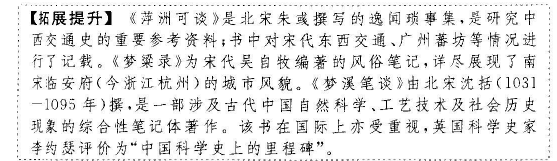 【拓展提升】《萍洲可谈》是北宋朱彧撰写的逸闻琐事集,是研究中
西交通史的重要参考资料;书中对宋代东西交通、广州蕃坊等情况进
行了记载。《梦粱录》为宋代吴自牧编著的风俗笔记,详尽展现了南
宋临安府(今浙江杭州)的城市风貌。《梦溪笔谈》由北宋沈括(1031
—1095 年)撰,是一部涉及古代中国自然科学、工艺技术及社会历史
现象的综合性笔记体著作。该书在国际上亦受重视,英国科学史家
李约瑟评价为“中国科学史上的里程碑”。